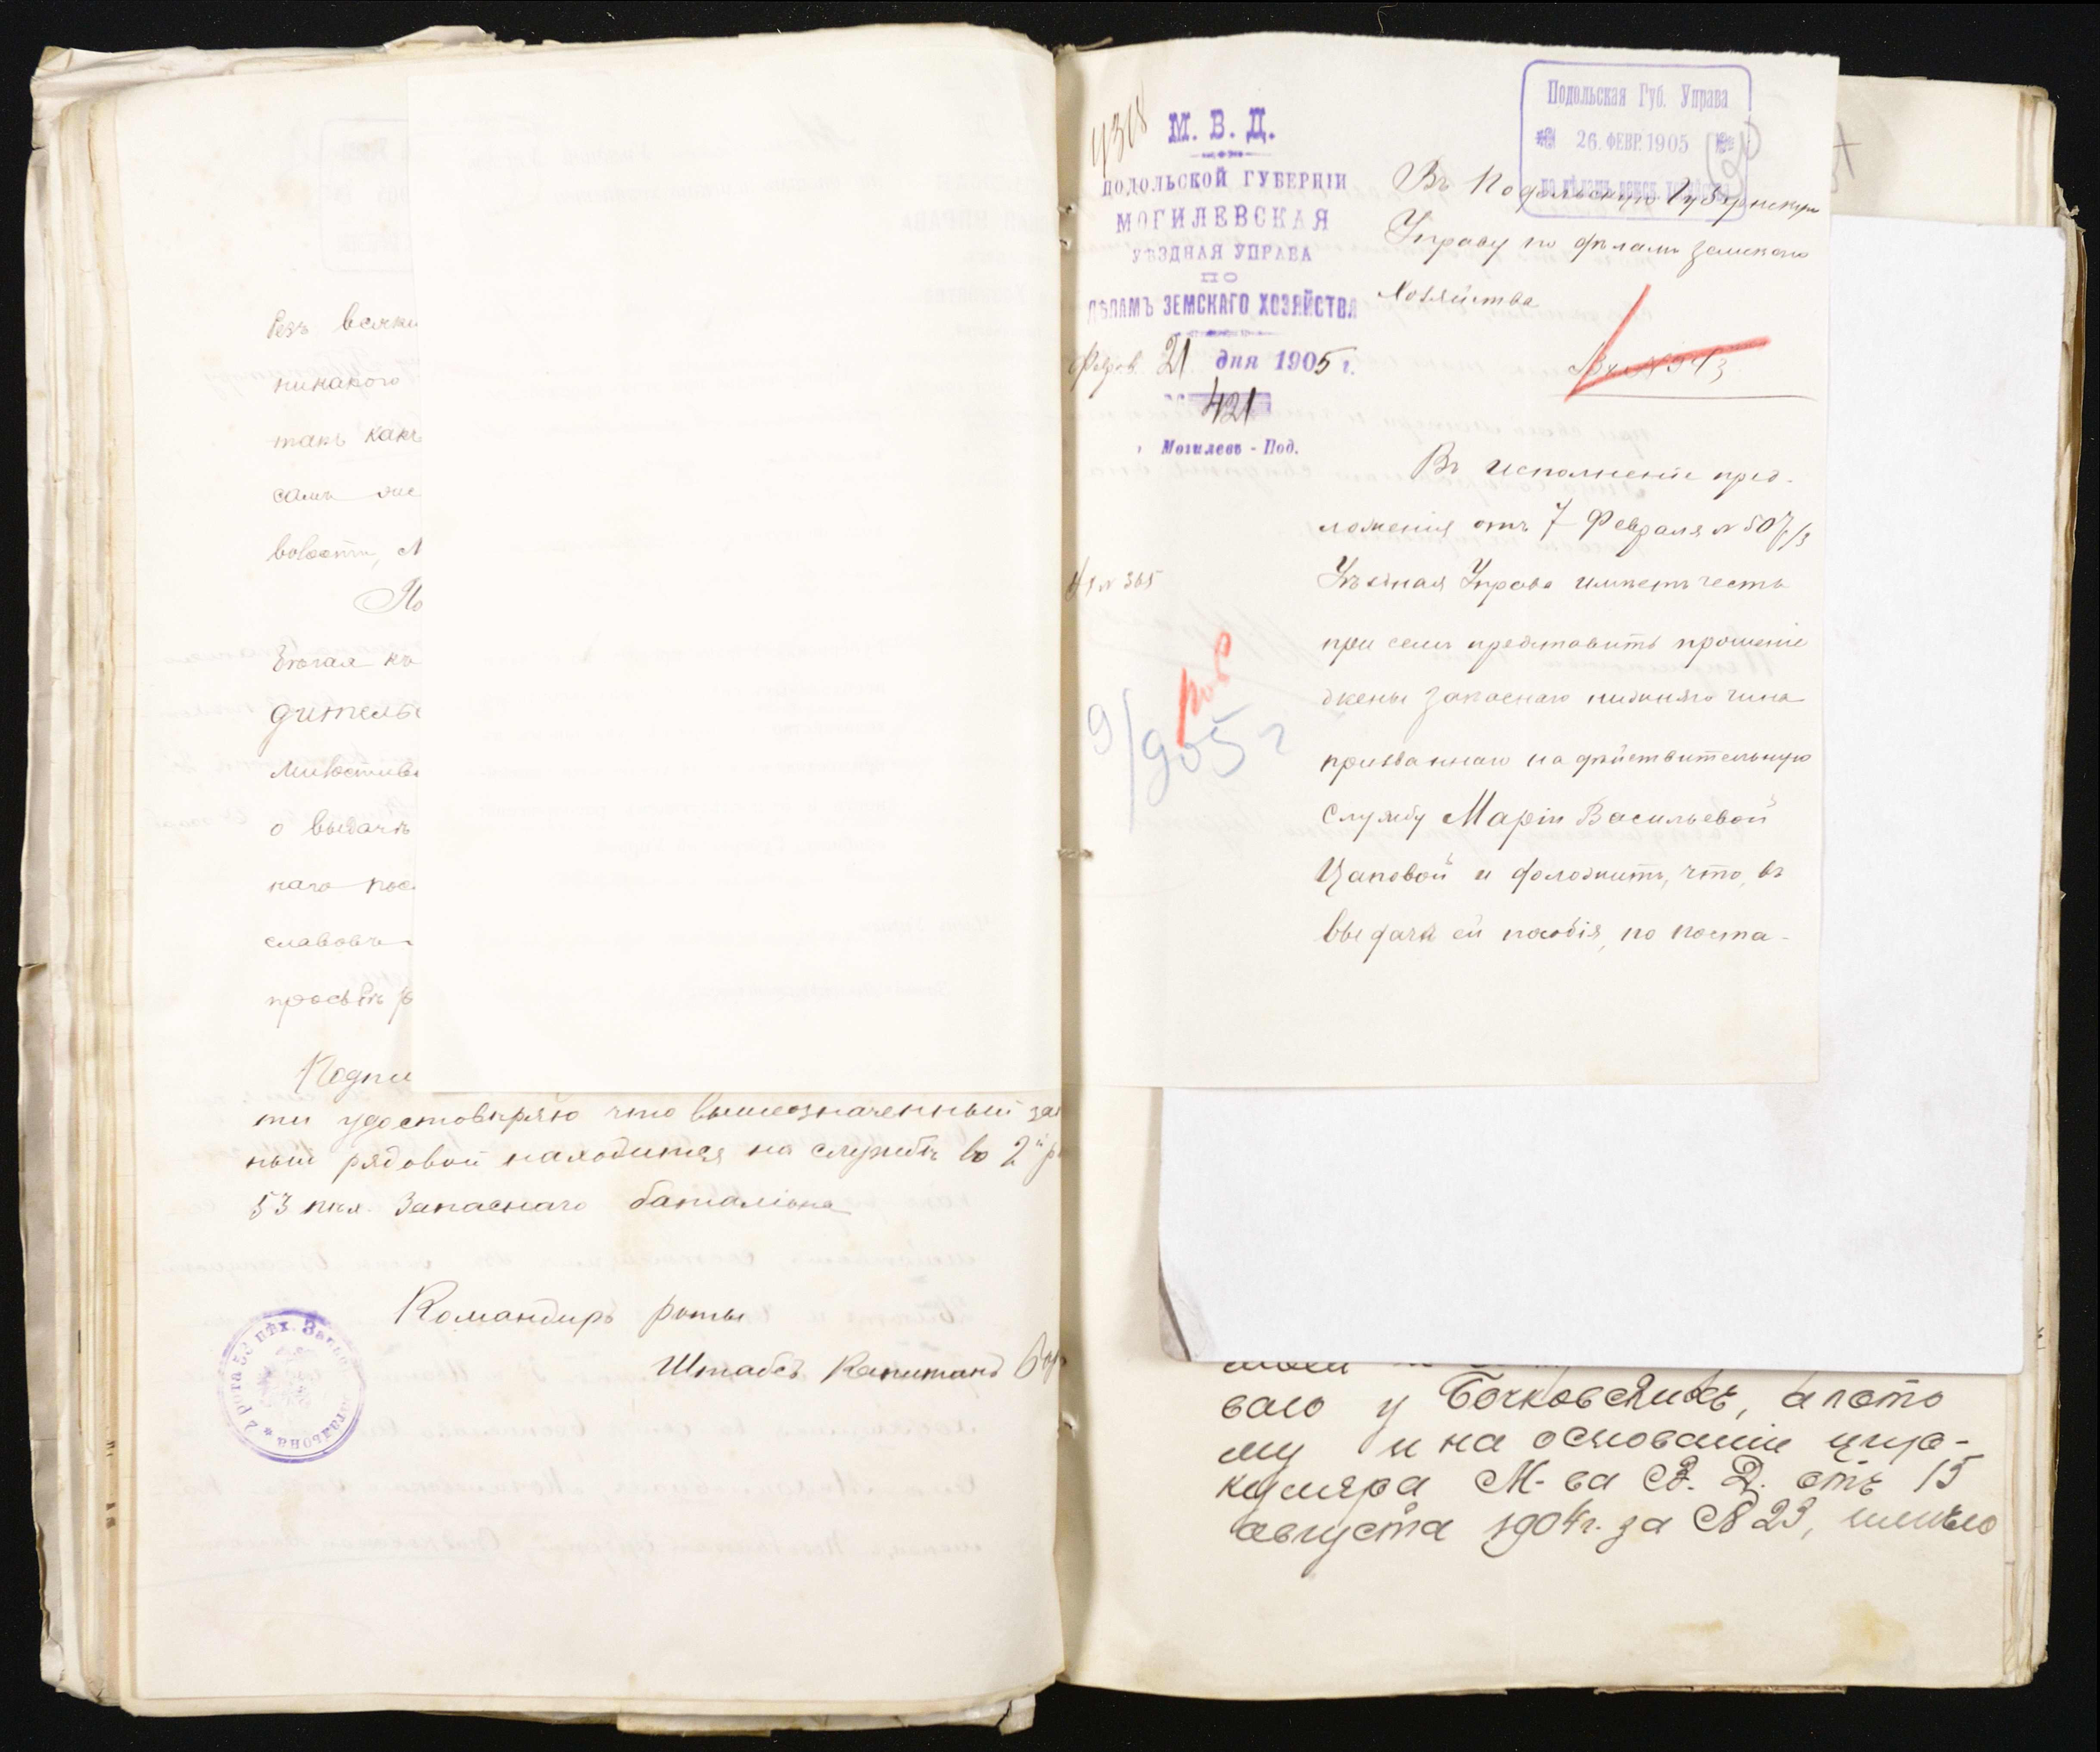 безъ всяки
никакого
такъ какъ
самъ же
вовости, М
По
бѣгая къ
дительс
милостиве
о выдачѣ
наго посо
славовъ
просьбѣ
Подпи
ти удостовѣряю что вышеозначенный зап
ный рядовой находится на службѣ во 2й р
53 пѣх. Запаснаго баталіона
Командиръ роты
Штабсъ Капитанъ
2 рота 53 пѣх. Запас. баталіона
4318
М. В. Д.
ПОДОЛЬСКОЙ ГУБЕРНІИ
МОГИЛЕВСКАЯ
УѢЗДНАЯ УПРАВА
ПО
ДѢЛАМЪ ЗЕМСКАГО ХОЗЯЙСТВА
Февр. 21 дня 1905 г.
421
Могилевъ - Под.
№ 365
9/905 г
Подольская Губ. Управа
26. ФЕВР. 1905
по дѣламъ земск. хозяйства
Въ Подольскую Губернскую
Управу по дѣламъ земскаго
Хозяйства
Въ исполненіе пред-
ложенія отъ 7 Февраля № 507/3
Уѣздная Управа имѣетъ честь
при семъ представить прошеніе
жены запаснаго нижняго чина
призваннаго на дѣйствительную
службу Маріи Васильевой
Цаповой и доложить, что, въ
выдачѣ ей пособія, по поста-
ваго у Бочковскихъ, а пото
му и на основаніи цир-
куляра М-ва В. Д. отъ 15
августа 1904 г. за № 23, имѣю